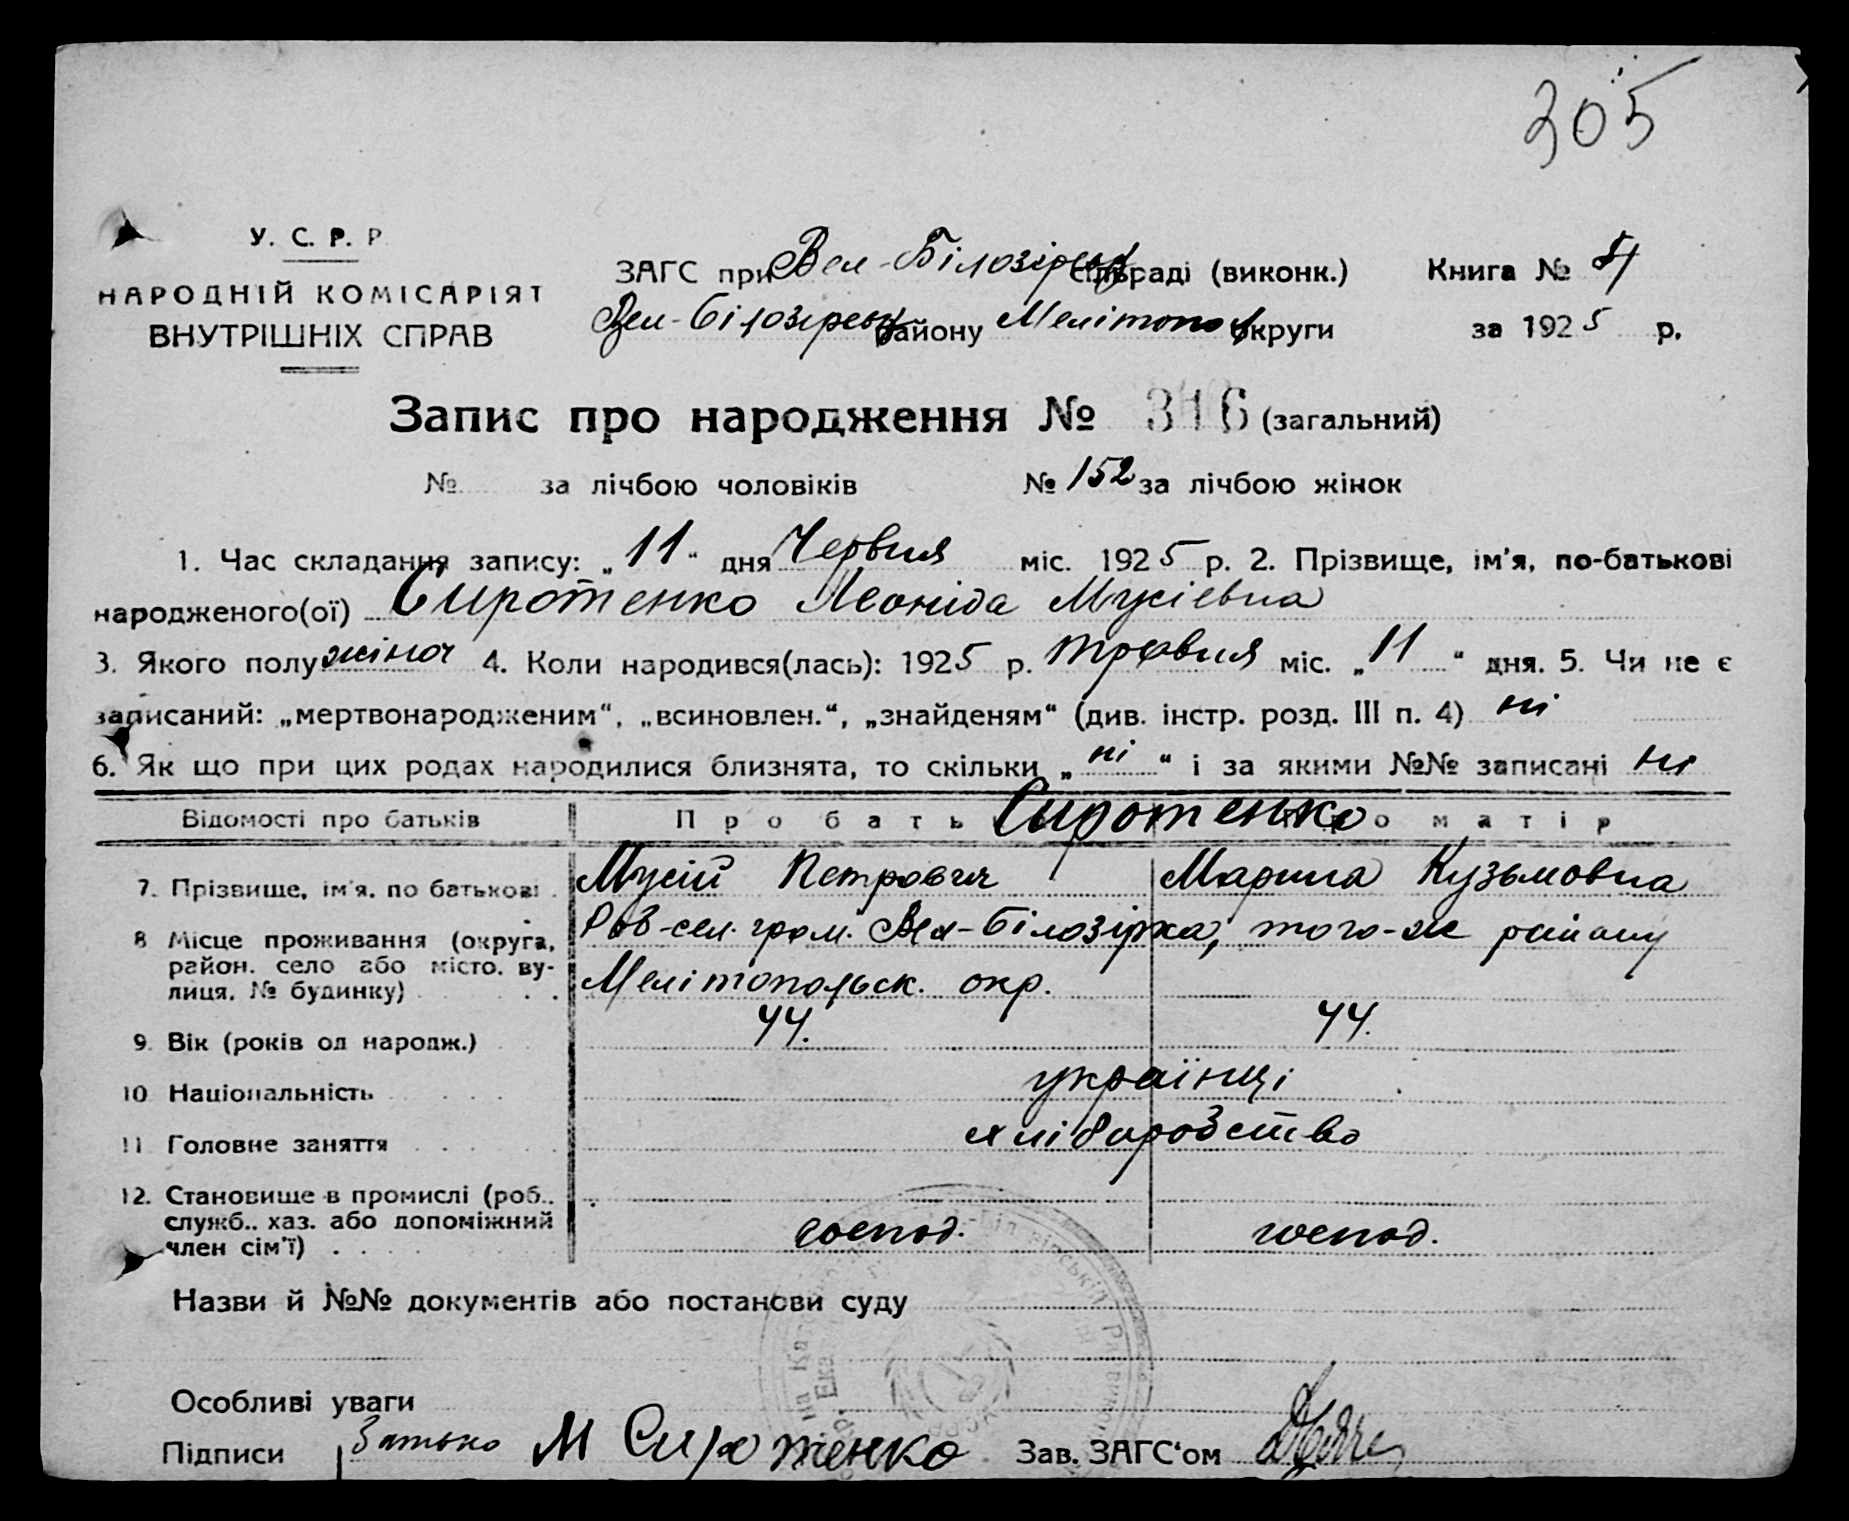 305
У. С. Р. Р
НАРОДНІЙ КОМІСАРІЯТ
ВНУТРІШНІХ СПРАВ
ЗАГС при Вел-Білозірськ сільраді (виконк.) Книга №
Вел-Білозірськ району Мелітопол округи за 1925 р.
Запис про народження № 316 (загальний)
№ за лічбою чоловіків № 152 за лічбою жінок
1. Час складання запису: „11“ дня Червня міс. 1925 р. 2. Прізвище, ім'я, по-батькові
народженого(ої) Сиротенко Леоніда Мусіевна
3. Якого полу жіноч 4. Коли народився(лась): 1925 р. травня міс. „11“ дня. 5. Чи не є
записаний: „мертвонародженим“, „всиновлен.“, „знайденям“ (див. інстр. розд. III п. 4) ні
6. Як що при цих родах народилися близнята, то скільки „ні“ і за якими №№ записані ні
Відомості про батьків Про батька Сиротенко Про матір
7. Прізвище, ім'я, по батькові Мусій Петрович Марина Кузьмовна
8 Місце проживання (округа, район, село або місто, вулиця, № будинку) сел. гром. Вел-Білозірка, того-ж району
Мелітопольск. окр.
9. Вік (років од народж.) 44. 44.
10 Національність українці
11 Головне заняття хліборобство
12. Становище в промислі (роб.. служб.. хаз. або допоміжний член сім'ї) господ. господ.
Назви й №№ документів або постанови суду
Особливі уваги
Підписи Батько М Сиротенко Зав. ЗАГС'ом